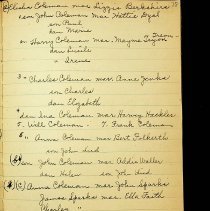 Elisha Coleman mar Lizzie Berkshire
son John Coleman mar Hattie Dyal
son Paul
dau Marie
son Harry Coleman mar. Mayme
dau Lucile
" Irene
3 " Charles Coleman mar. Anne Jenks
son Charles
dau Elizabeth
4 dau Ina Coleman mar Harvey Heckler
5. Will Coleman. 7. Frank Coleman
6" Anna Coleman mar Bert Folkerth
son John died
son John Coleman mar Addie Waller
dau Helen son Joh died
(C) Anna Coleman mar John Sparks
James Sparks mar Ella Faith
Charles "